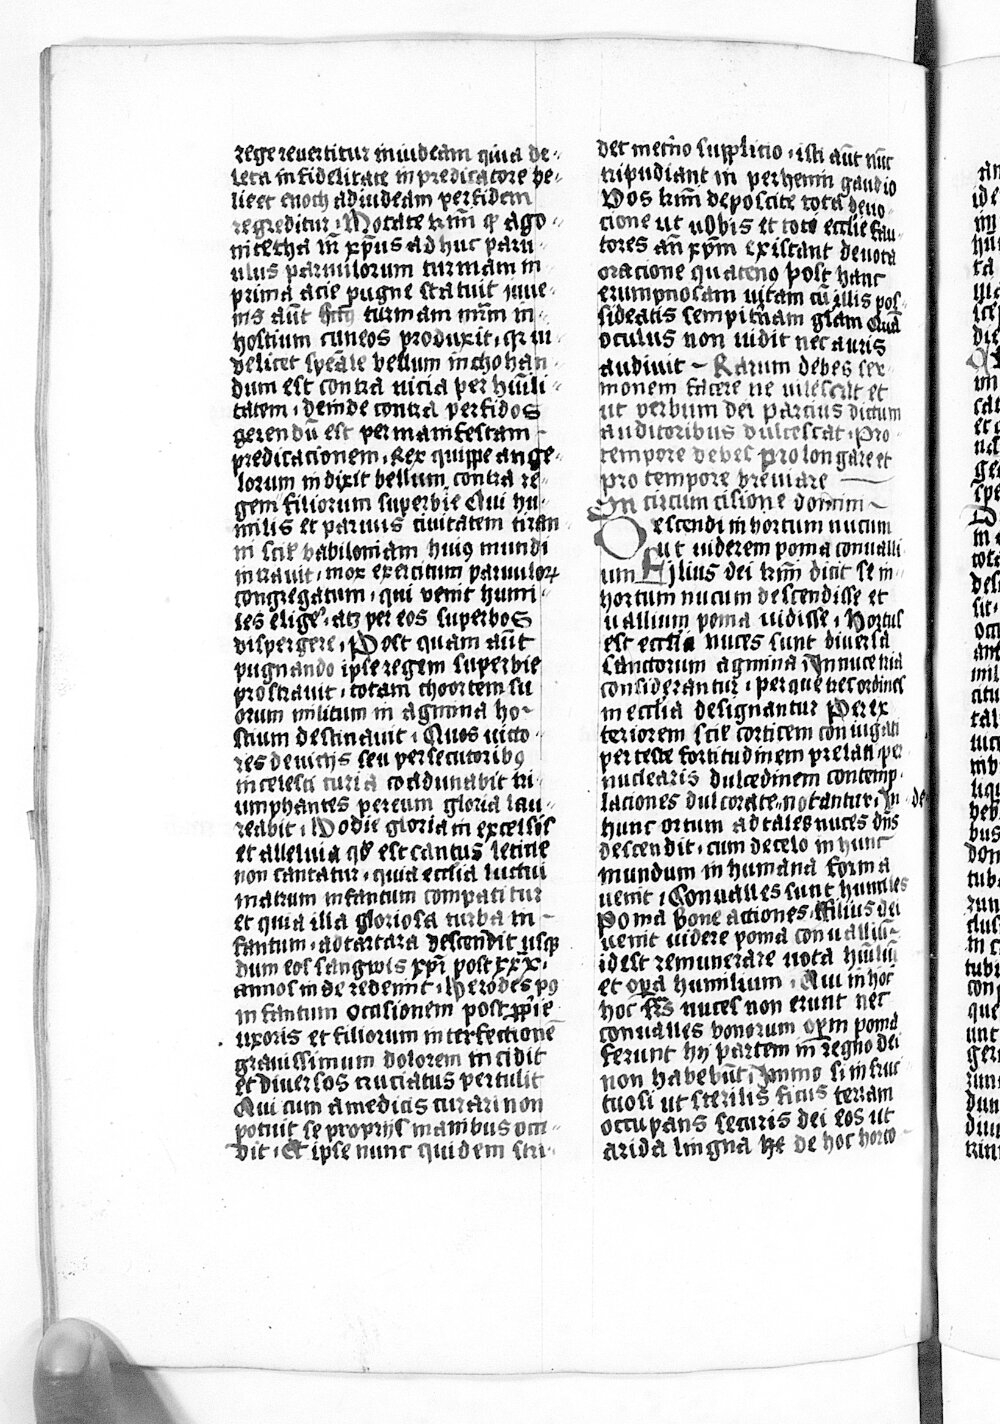 rege reuertitur in iudeam quia de-
leta infidelitate in predicatore he-
lie et enoch ad iudeam perfidem
regreditur. Notate krmi qͦ ago-
nitetha
xp̄us ad huc paru-
ulus paruulorum turmam in
prima acie pugne statuit iuue-
nis aūt
turmam
in-
hostium cuneos produxit
ui
delicet sp̄eale bellum inchohan-
dum est contra uicia per hūili-
tatem. deinde contra perfidos
gerendū est per manifestam-
predicacionem. Rex quippe ange-
lorum indixit bellum contra re-
gem filiorum superbie Qui hu-
milis et paruus ciuitatem tiran
ni scił babiloniam huiꝯ mundi
intrauit. mox exercitum paruuloꝝ
congregatum. qui uenit humi-
les elige
atꝫ per eos superbos
dispergere. Post quam aūt
pugnando ipse regem superbie
prostrauit. totam choortem su
orum militum in agmina ho-
stium destinauit. Quos uicto-
res deuictis seu persecutoribꝯ
in celesti curia coadunabit tri-
umphantes per eum gloria lau-
reabit. Hodie gloria in excelsis
et alleluia qđ est cantus leticie
non cantatur. quia ecclia luctui
matrum infantum compatitur
et quia illa gloriosa turba in-
fantum. ad tartara descendit usqꝫ
dum eos sangwis xp̄i post xxx.
annos inde redemit. Herodes pꝯ
infantum occasionem post
uxoris et filiorum interfectionē
grauissimum dolorem incidit
et diuersos cruciatus pertulit
Qui cum a medicis curari non
potuit se proprijs manibus occi-
dit. et ipse nunc quidem stri-
det
supplicio. isti aūt nūc
tripudiant in perhenni gaudio
Vos krmi deposcite tota deuo-
cione ut uobis et toti ecclie fau-
tores an̄ xp̄m existant deuota
oracione quateno post hanc
erumpnosam uitam cū illis pos-
sideatis sempit̄nam gl̄am Quā
oculus non uidit nec auris
audiuit - Rarum debes ser-
monem facere ne uilescat et
ut uerbum dei parcius dictum
auditoribus dulcescat. Pro
tempore debes prolongare et
pro tempore breuiare
In circumcisione domini
Descendi in hortum nucum
ut uiderem poma conualli
um Filius dei krmi dicit se in-
hortum nucum descendisse et
uallium poma uidisse. Hortus
est ecclia nuces sunt diuersa
sanctorum agmina. In nuce tria
considerantur. per que tres ordines
in ecclia designantur Per ex
teriorem scił corticem coniugati
per teste fortitudinem prelati. per
nuclearis dulcedinem contemp-
laciones dulcorate notantur. In
hunc ortum ad tales nuces dn̄s de-
descendit. cum de celo in hunc
mundum in humana forma
uenit. Conualles sunt humiles
Poma bone actiones. Filius dei
uenit uidere poma conualliū-
id est remunerare uota hūiliū
et opa humilium. Qui in hoc
hoc
nuces non erunt nec
conualles bonorum opm poma
ferunt hij partem in regno dei
non habebūt. Immo si infruc
tuosi ut sterilis ficus terram
occupans securis dei eos ut
arida lingna
de hoc horto